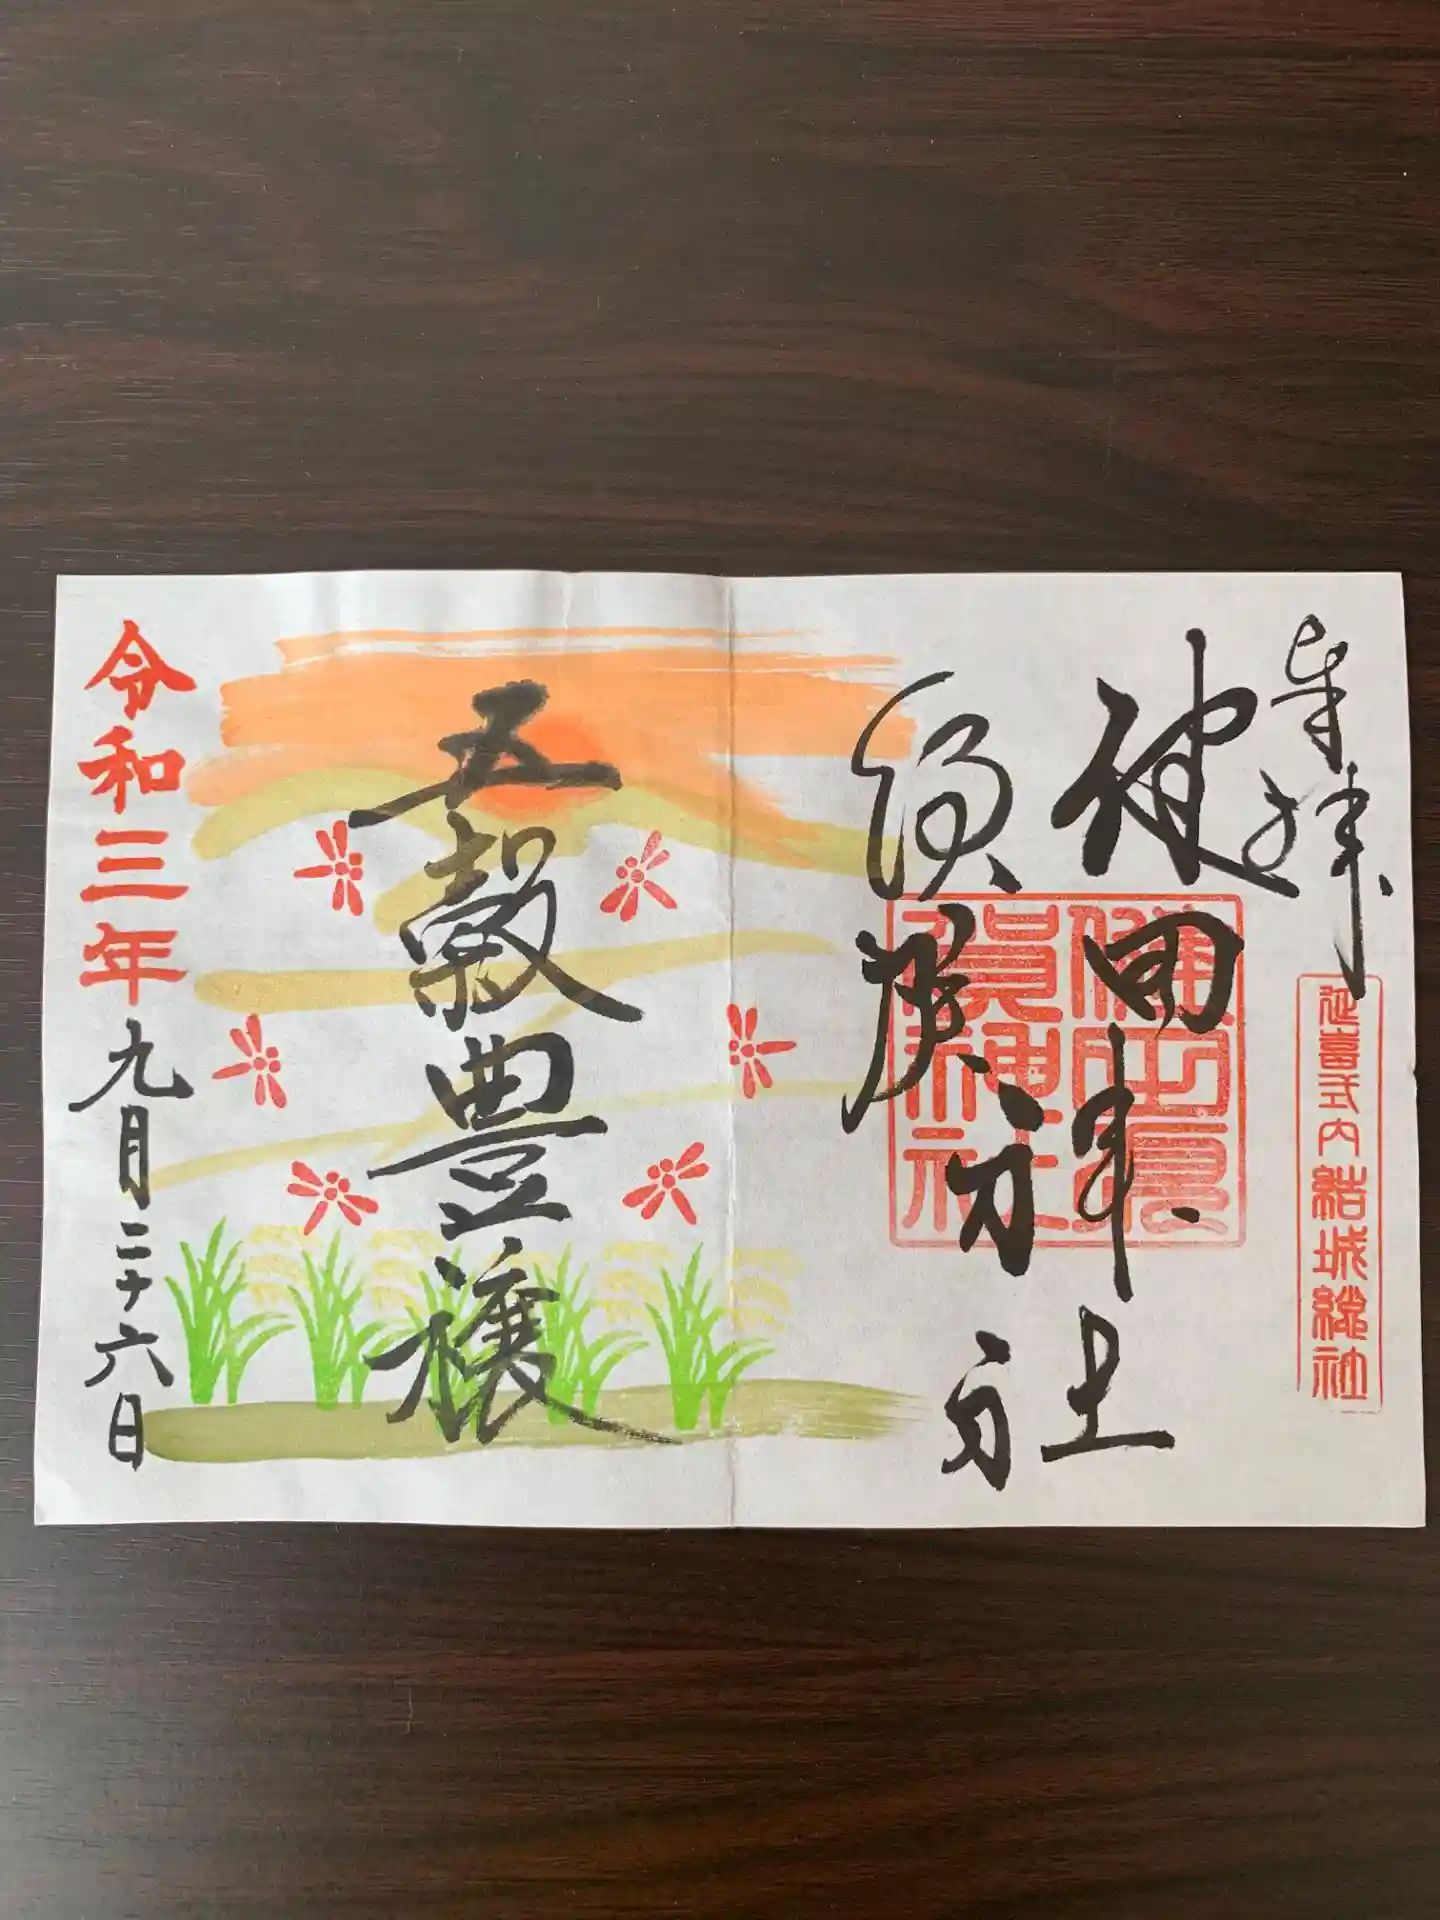 奉拝
延喜式内結城總社
健田神社
須賀神社
健田須
賀神社
五穀豊穣
令和三年九月二十六日